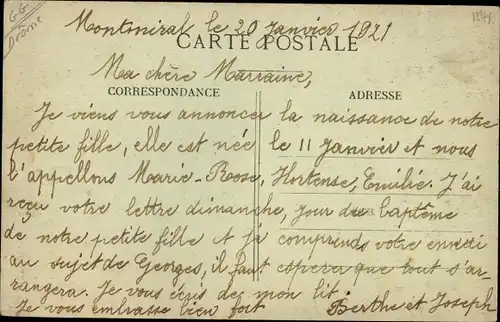 GG
Drôme
1241
Montmiral le 20 Janvier 1921
CARTE POSTALE
Ma chère Marraine,
CORRESPONDANCE
ADRESSE
Je viens vous annoncer la naissance de notre
petite fille, elle est née le 11 Janvier et nous
l'appellons Marie-Rose, Hortense, Emilie. J'ai
reçu votre lettre dimanche, jour du baptême
de notre petite fille et je comprends votre ennui
au sujet de Georges, il faut esperer que tout s'ar-
rangera. Je vous écris de mon lit
Je vous embrasse bien fort Berthe et Joseph